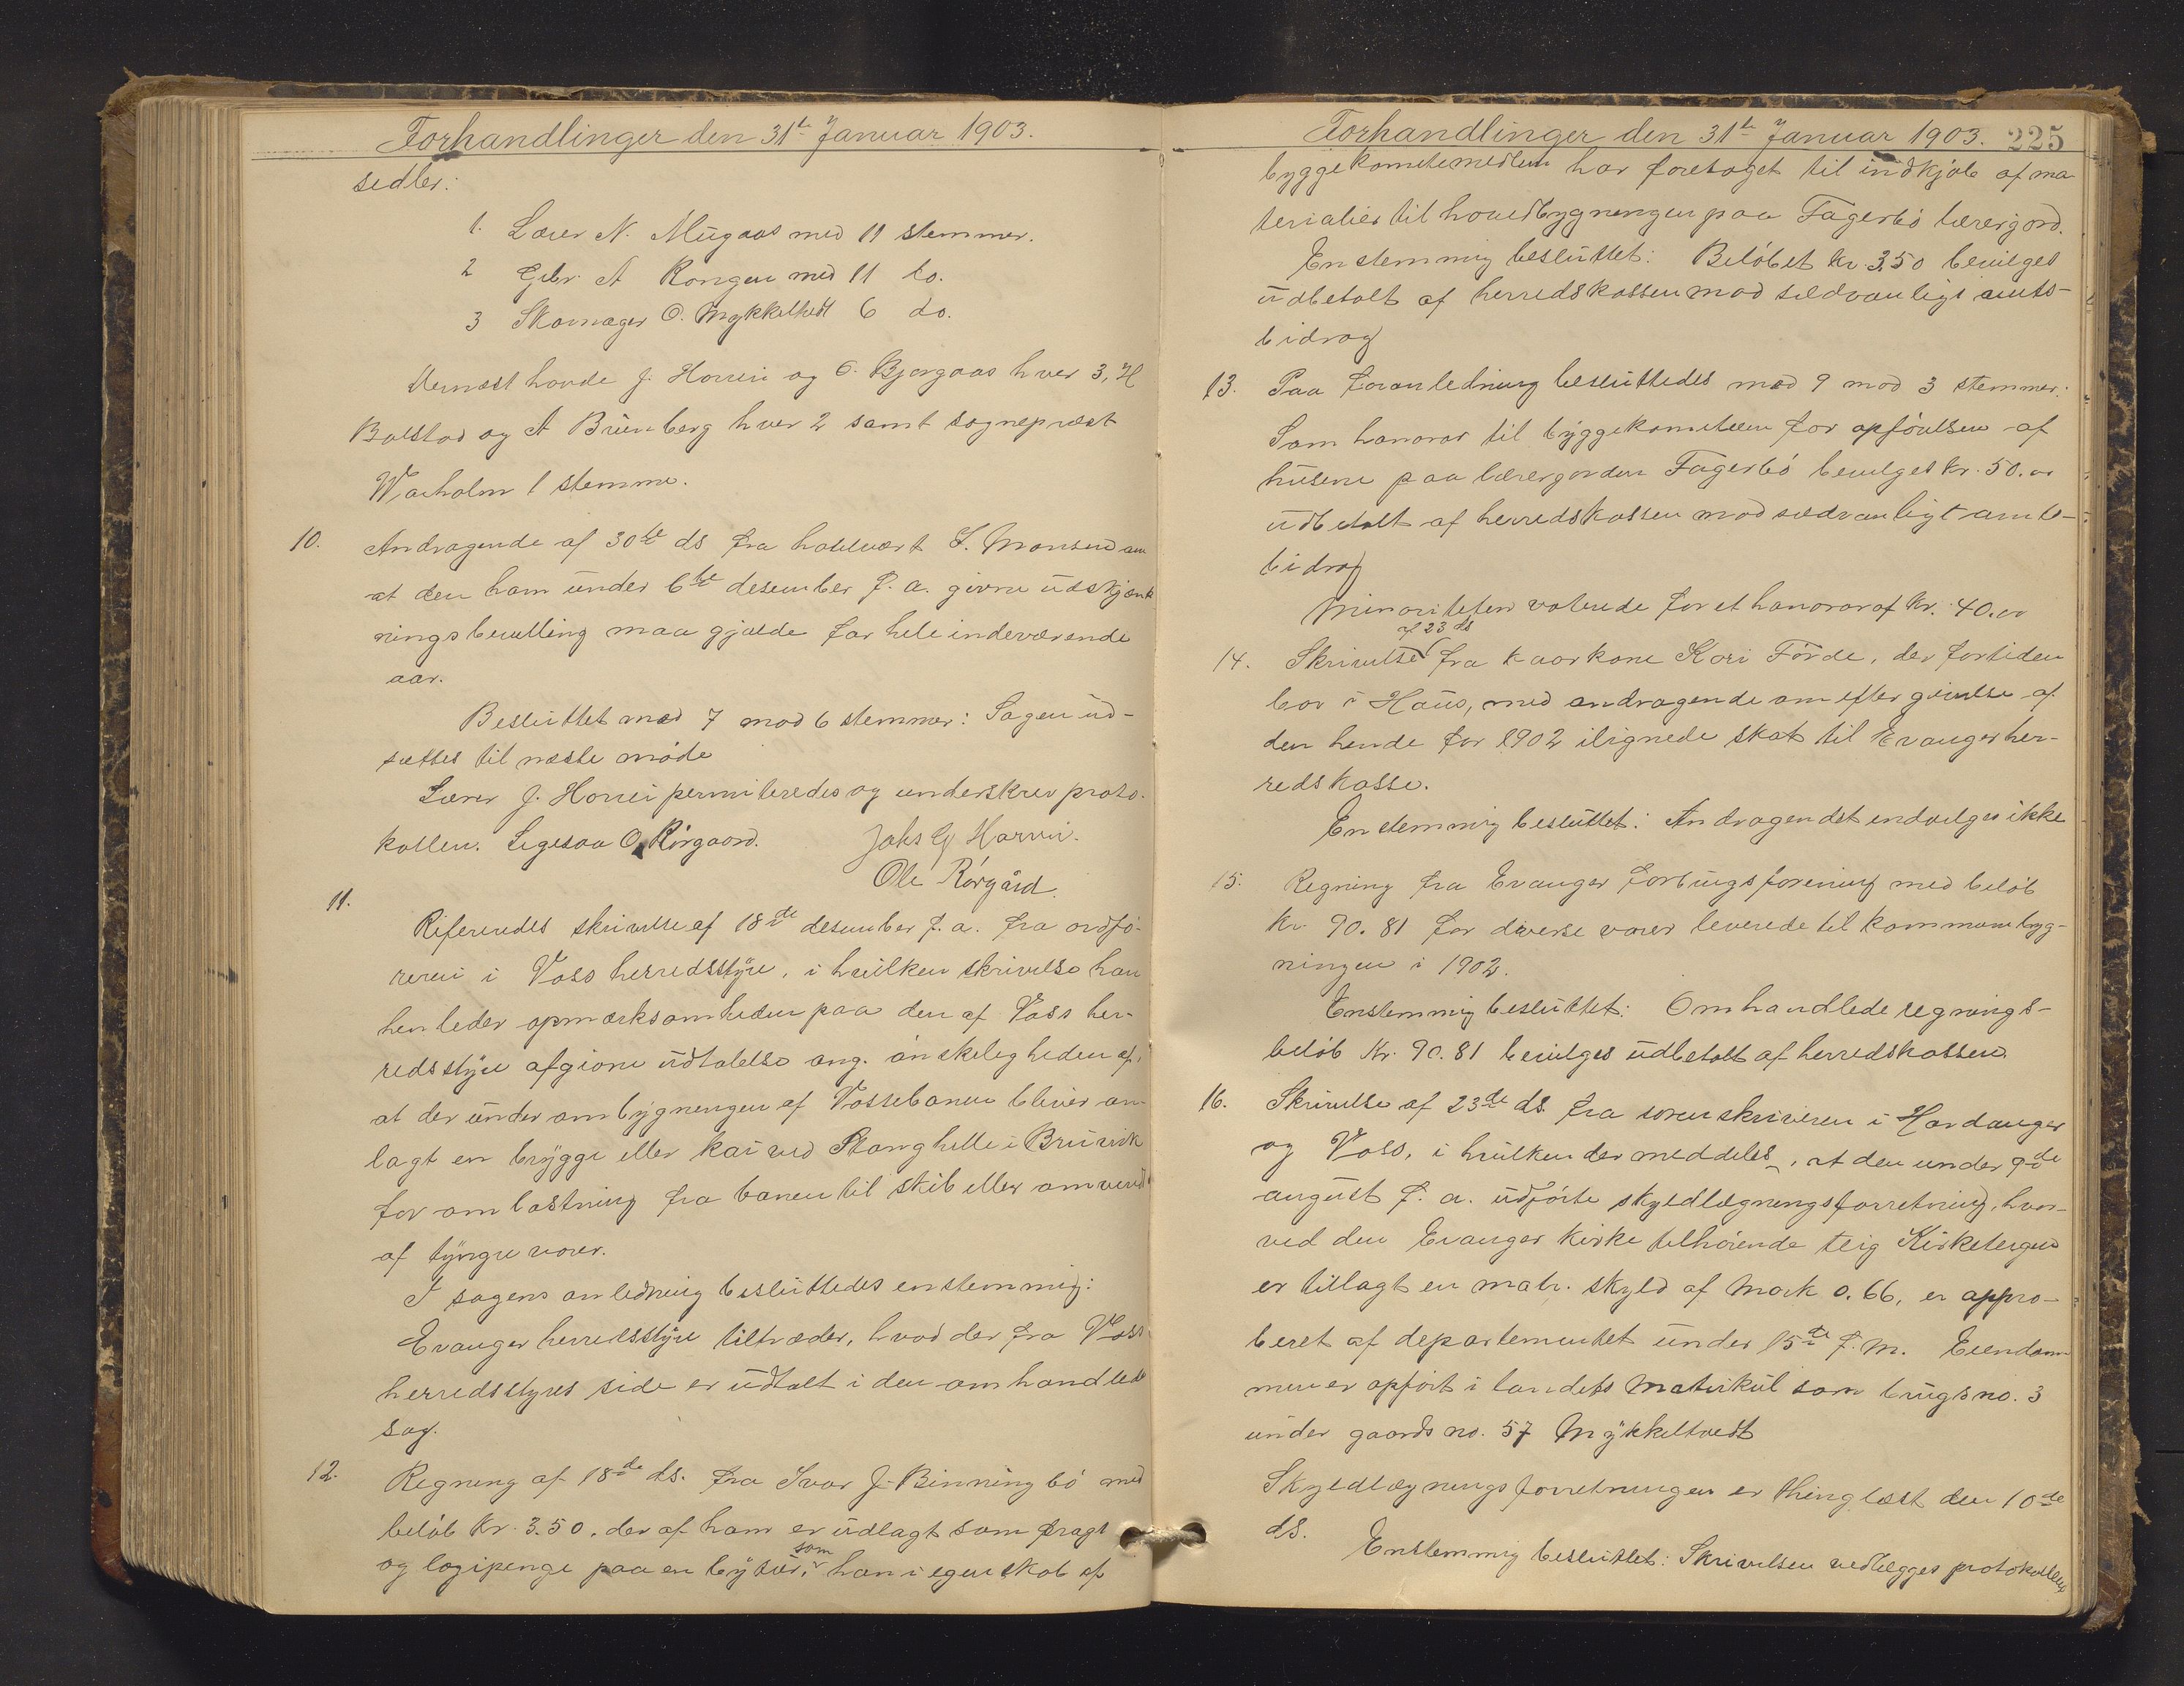 Forhandlinger den 31te Januar 1903.
sedler:
1. Lærer N. Mugaas med 11 stemmer.
2 Gbr. A Rongen med 11 do.
3 Skomager O. Mykkeltvedt 6 do.
Dernæst havde J. Horvei og O. Bjørgaas hver 3, H
Bolstad og A Brunborg hver 2 samt sogneprest
Warholm 1 stemme.
10. Andragende af 30te ds fra hotelvært S. Monsen om
at den ham under 6te desember f. a. givne udskjænk
ningsbevilling maa gjælde for hele indeværende
aar.
Besluttet med 7 mod 6 stemmer: Sagen ud-
sættes til næste møde
Lærer J. Horvei permiteredes og underskrev proto-
kollen. Ligesaa O. Rørgaard. Johs G Horvei.
Ole Rørgård.
11.
Refereredes skrivelse af 18de desember f. a. fra ordfø-
reren i Voss herredsstyre, i hvilken skrivelse han
henleder opmærksomheden paa den af Voss her-
redsstyre afgivne udtalelse ang. ønskeligheden af,
at der under ombygningen af Vossebanen bliver an-
lagt en brygge eller kai ved Stanghelle i Bruvik
for omlastning fra banen til skib eller omvendt
af tyngre varer.
I sagens anledning besluttedes enstemmig:
Evanger herredsstyre tiltræder, hvad der fra Voss
herredsstyres side er udtalt i den omhandlede
sag.
12. Regning af 18de ds. fra Ivar J. Binningbø med
beløb kr. 3.50, der af ham er udlagt som fragt
og logipenge paa en bytur, som han i egenskab af
Forhandlinger den 31te Januar 1903. 225
byggekomitemedlem har foretaget til indkjøb af ma
terialier til hovedbygningen paa Fagerbø lærergard.
Enstemmig besluttet: Beløbet kr. 3.50 bevilges
udbetalt af herredskassen mod sædvanligt amts-
bidrag
13. Paa foranledning besluttedes med 9 mod 3 stemmer:
Som honorar til byggekomiteen for opførelsen af
husene paa lærergarden Fagerbø bevilges kr. 50.00
udbetalt af herredskassen mod sædvanligt amts-
bidrag
Minoriteten voterede for et honorar af kr. 40.00
14. Skrivelse af 23 ds fra kaarkone Kari Førde, der fortiden
bor i Haus, med andragende om eftergivelse af
den hende for 1902 ilignede skat til Evanger her-
redskasse.
Enstemmig besluttet: Andragendet indvilges ikke
15. Regning fra Evanger forbrugsforening med beløb
kr. 90.81 for diverse varer leverede til kommunebyg-
ningen i 1902.
Enstemmig besluttet: Omhandlede regnings-
beløb kr. 90.81 bevilges udbetalt af herredskassen.
16. Skrivelse af 23de ds. fra sorenskriveren i Hardanger
og Voss, i hvilken der meddeles, at den under 9de
august f. a. udførte skyldlægningsforretning, hvor-
ved den Evanger kirke tilhørende teig Kirketeigen
er tillagt en matr. skyld af Mark 0.66, er appro-
beret af departementet under 15de f. m. Eiendom-
men er opført i landets Matrikul som brugs no. 3
under gaards no. 57 Mykkeltvedt
Skyldlægningsforretningen er thinglæst den 10de
ds.
Enstemmig besluttet: Skrivelsen vedlægges protokollen